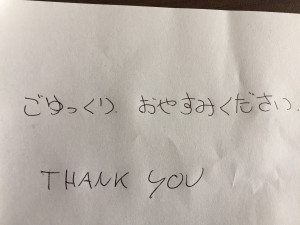 ごゆっくり、おやすみください.
THANK YOU